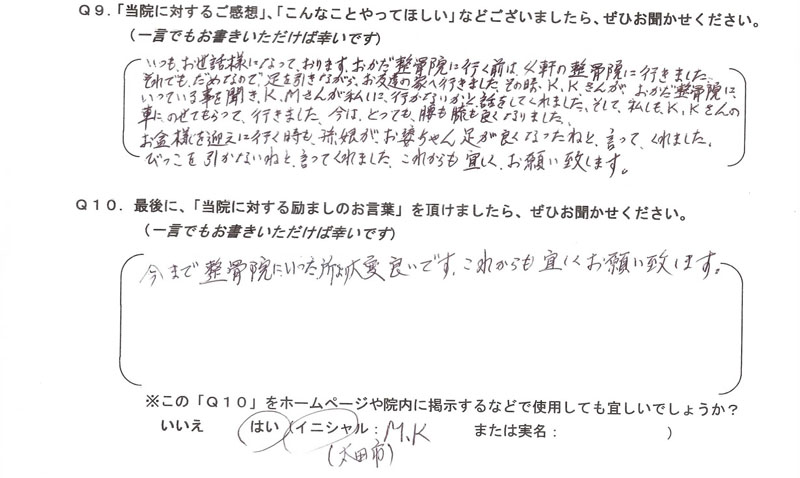 Q9.「当院に対するご感想」、「こんなことやってほしい」などございましたら、ぜひお聞かせください。
(一言でもお書きいただけば幸いです)
いつも、お世話様になって、おります。おかだ整骨院に行く前は、4軒の整骨院に行きました。
それでも、だめなので足を引きながら、お友達の家へ行きました。その時、K,Kさんが、おかだ整骨院に
いっている事を聞き、K,Mさんが私に、行かないかと話をしてくれました。そして、私も、K,Kさんの
車にのせてもらって、行きました。今は、とっても、腰も膝も良くなりました。
お金様を迎えに行く時も、孫娘が、お婆ちゃん足が良くなったねと、言って、くれました。
びっこを引かないねと、言ってくれました。これからも宜しく、お願い致します。
Q10.最後に、「当院に対する励ましのお言葉」を頂けましたら、ぜひお聞かせください。
(一言でもお書きいただけば幸いです)
今まで整骨院にいった所より大変良いです。これからも宜しくお願い致します。
※この「Q10」をホームページや院内に掲示するなどで使用しても宜しいでしょうか?
いいえ はい (イニシャル:M.K または実名: )
(太田市)